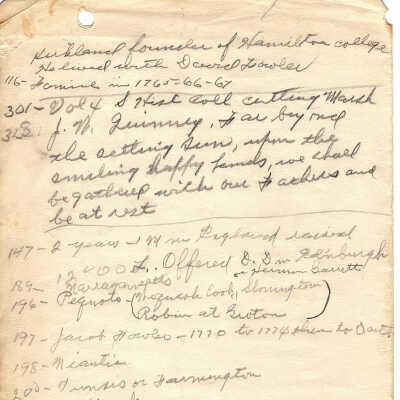 Kirkland founder of Hamilton college
Helived with David Fowler
116- Famine in 1765-66-67
301- Vol 4 S Hist Coll cutting Marsh
318. J. W. Quinney, Far beyond
the setting Sun, upon the
smiling happy lands, we shall
be gathered with our Fathers and
be at rest
147- 2 years & M in England raised
12000 L. Offered D. D in Edinburgh
189- Narragansetts or Herman Garrett
196- Pequots (Wequash Cook, Stonington
Robin at Groton)
197- Jacob Fowler - 1770 to 1774 then to Dart
198- Niantic
200- Tunxis or Farmington